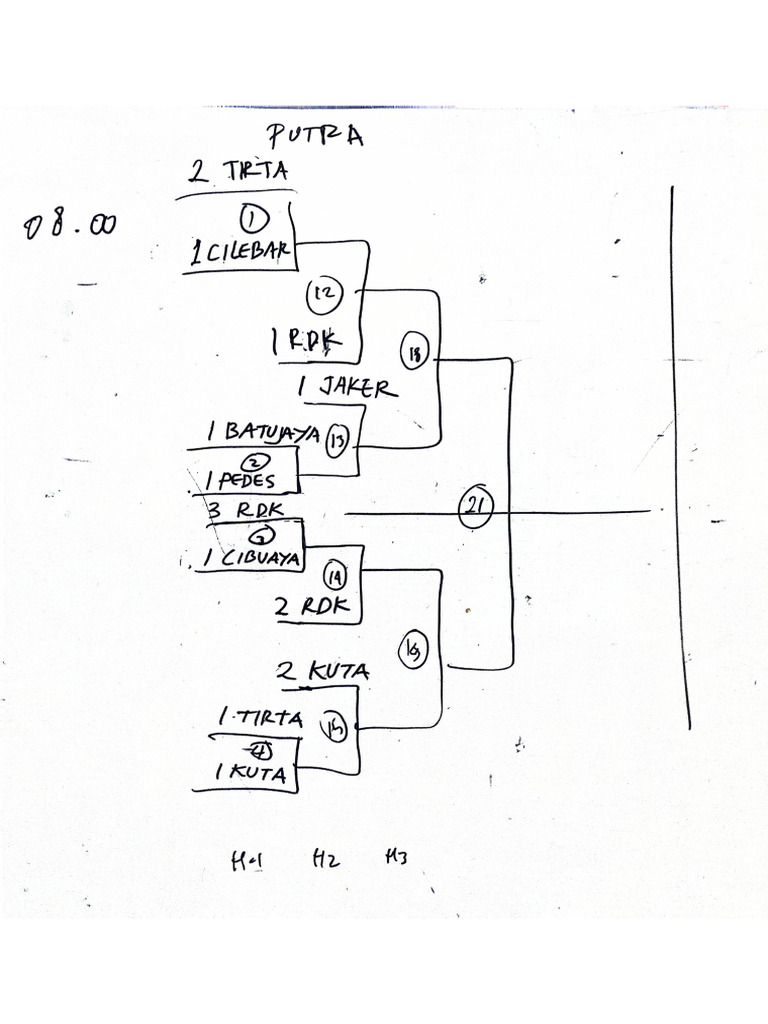 PUTRA
2 TIRTA
08.00
1
1 CILEBAR
12
1 RDK
18
1 JAKER
1 BATUJAYA
13
2
1 PEDES
3 RDK
21
3
1 CIBUAYA
14
2 RDK
19
2 KUTA
1 TIRTA
15
4
1 KUTA
H-1 H2 H3